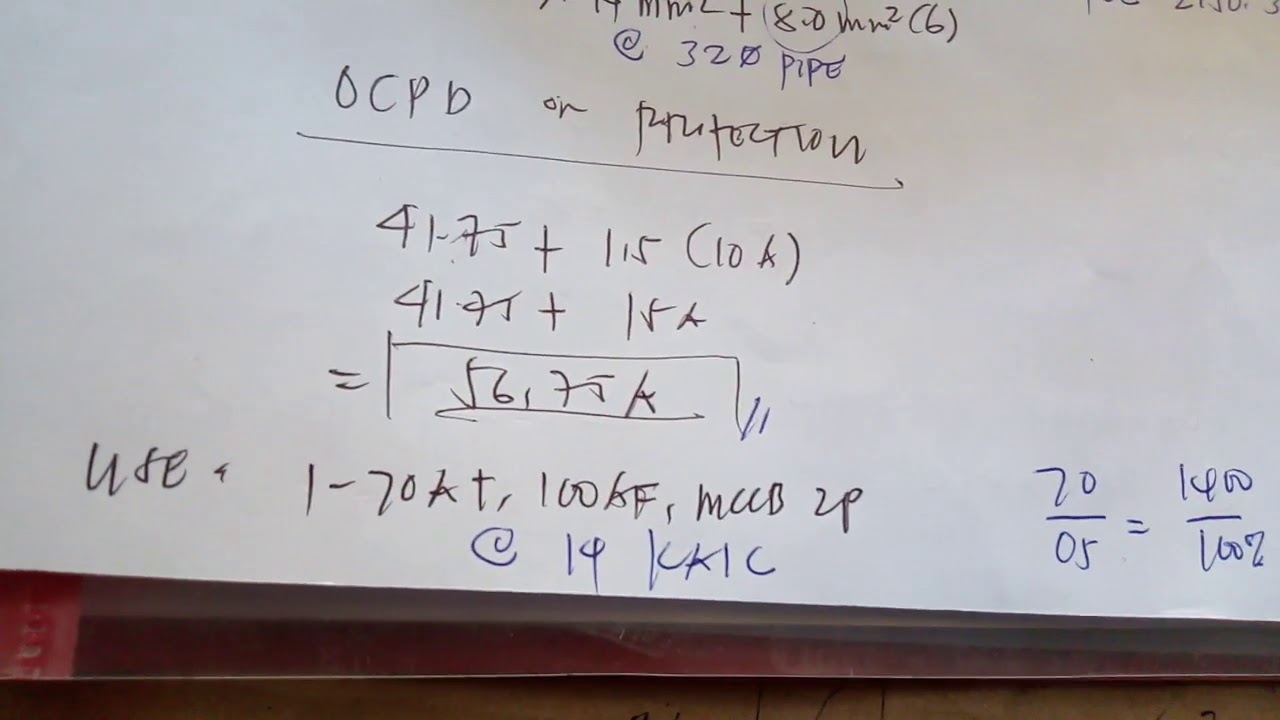 14 mm2 + (8.0 mm2 (G)
@ 32Ø PIPE
OCPD or PROTECTION
41.75 + 1.5 (10A)
41.75 + 15A
= 56.75A
USE: 1-70AT, 100AF, MCCB 2P
@ 14 KAIC
70/05 = 1400/100%